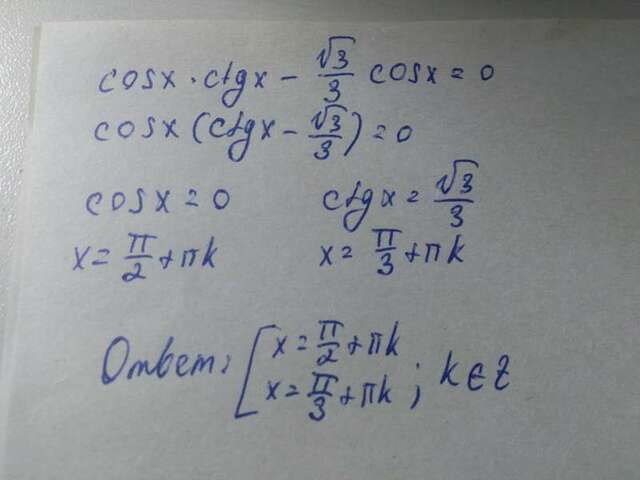 cosx · ctgx − √3/3 cosx = 0
cosx (ctgx − √3/3) = 0
cosx = 0 ctgx = √3/3
x = π/2 + πk x = π/3 + πk
Ответ: [ x = π/2 + πk
x = π/3 + πk ; k ∈ Z